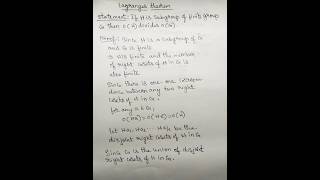 Lagranges theorem
Statement: If H is subgroup of finite group
G then O(H) divides O(G)
Proof: Since H is a subgroup of G
and G is finite
⇒ H is finite and the number
of right cosets of H in G is
also finite.
Since there is one-one correspon
dence between any two right
cosets of H in G.
for any a ∈ G,
O(Ha) = O(He) = O(H)
let Ha₁, Ha₂ Hak be the
disjoint right cosets of H in G
Since G is the union of disjoint
right cosets of H in G.